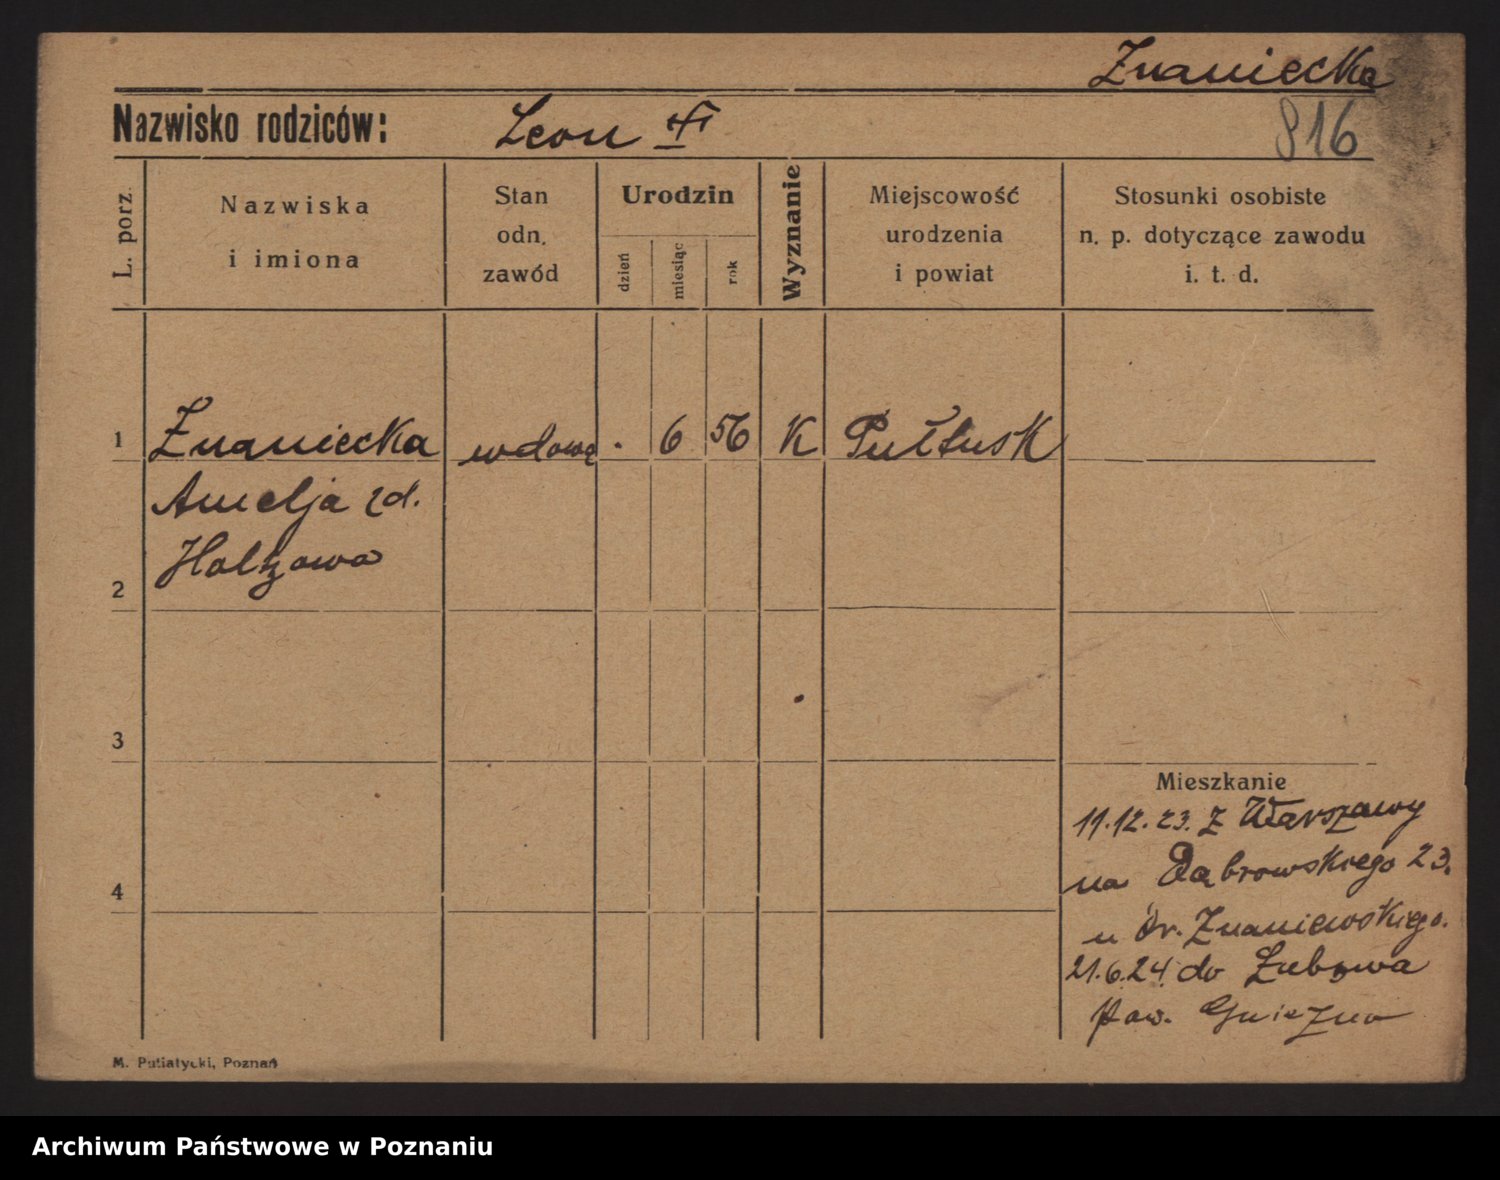 Znaniecka
Nazwisko rodziców: Leon
816
L. porz.
Nazwiska
i imiona
Stan
odn.
zawód
Urodzin
dzień
miesiąc
rok
Wyznanie
Miejscowość
urodzenia
i powiat
Stosunki osobiste
n. p. dotyczące zawodu
i. t. d.
1 Znaniecka wdowa . 6 56 K Pułtusk
Amelja zd.
Holtzowa
2
3
4
Mieszkanie
11.12.23. z Warszawy
na Dąbrowskiego 23.
u Dr. Znaniewskiego.
21.6.24 do Łubowa
pow. Gniezno
M. Putiatycki, Poznań
Archiwum Państwowe w Poznaniu